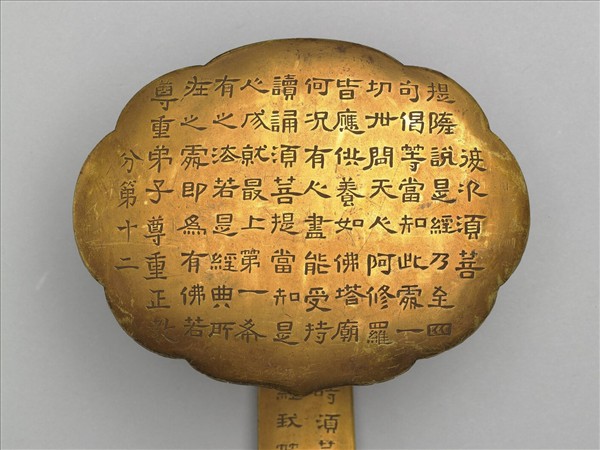 復次須菩
提隨說是經乃至四
句偈等當知此處一
切世間天人阿修羅
皆應供養如佛塔廟
何況有人盡能受持
讀誦須菩提當知是
人成就最上第一希
有之法若是經典所
在之處即為有佛若
尊重弟子 尊重正教
分第十二
時須
經我